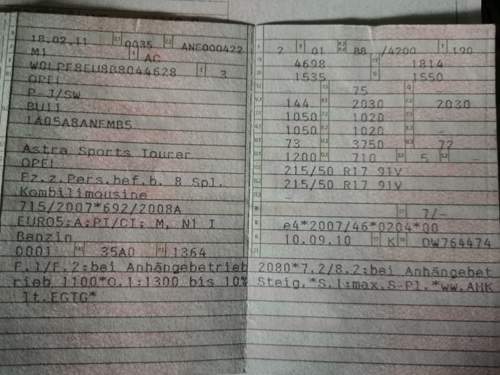 18.02.11 0035 ANE000422
M1 AC
W0LPF8EU8B8044628 3
OPEL
P-J/SW
BU11
1A05A8ANFMB5
Astra Sports Tourer
OPEL
Fz.z.Pers.bef.b. 8 Spl.
Kombilimousine
715/2007*692/2008A
EURO5;A;PI/CI: M, N1 I
Benzin
0001 35A0 1364
2 01 88 /4200 190
4698 1814
1535 1550
75
144 2030 2030
1050 1020
1050 1020 -
73 3750 72
1200 710 5 -
215/50 R17 91V
215/50 R17 91V
-
7/-
e4*2007/46*0204*00
10.09.10 K OW764474
F.1/F.2:bei Anhängebetrieb 2080*7.2/8.2:bei Anhängebet
rieb 1100*O.1:1300 bis 10% Steig.*S.1:max.S-Pl.*ww.AHK
lt.EGTG*